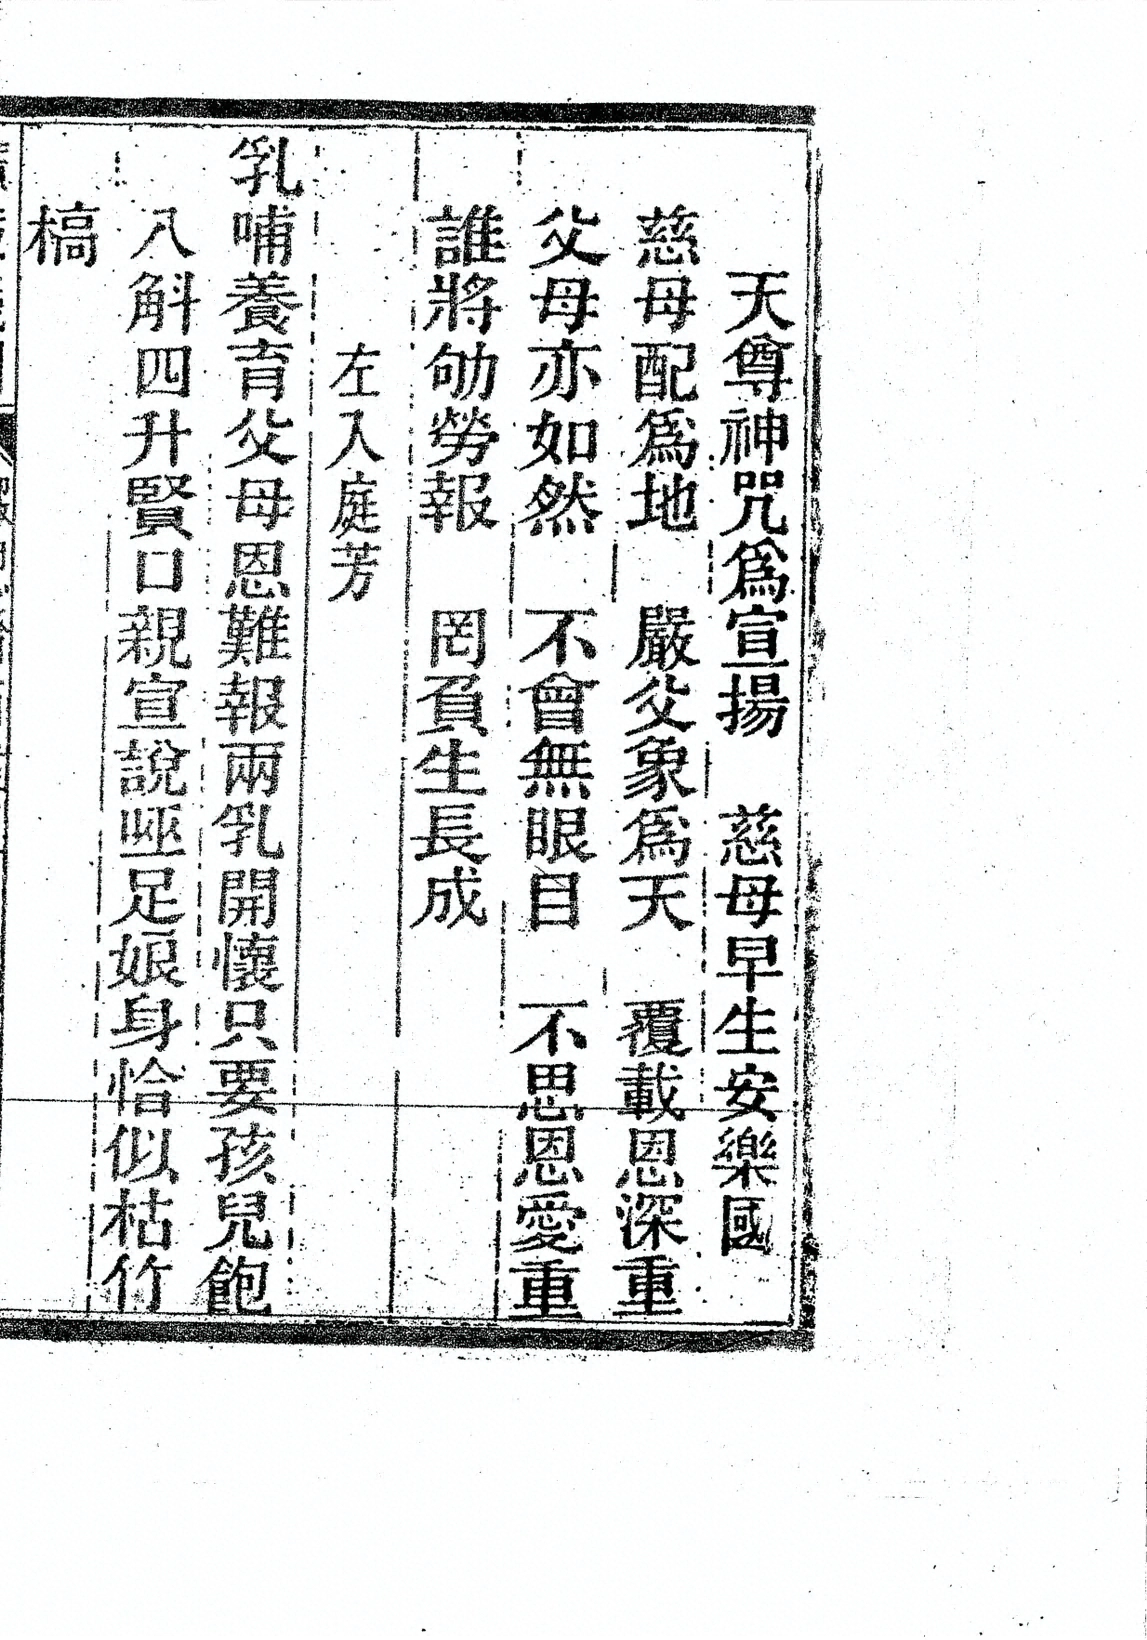 天尊神咒爲宣揚　慈母早生安樂國
慈母配爲地　嚴父象爲天　覆載恩深重
父母亦如然　不會無眼目　不思恩愛重
誰將劬勞報　罔負生長成
左入庭芳
乳哺養育父母恩難報兩乳開懷只要孩兒飽
八斛四升賢口親宣說咂足娘身恰似枯竹
槁